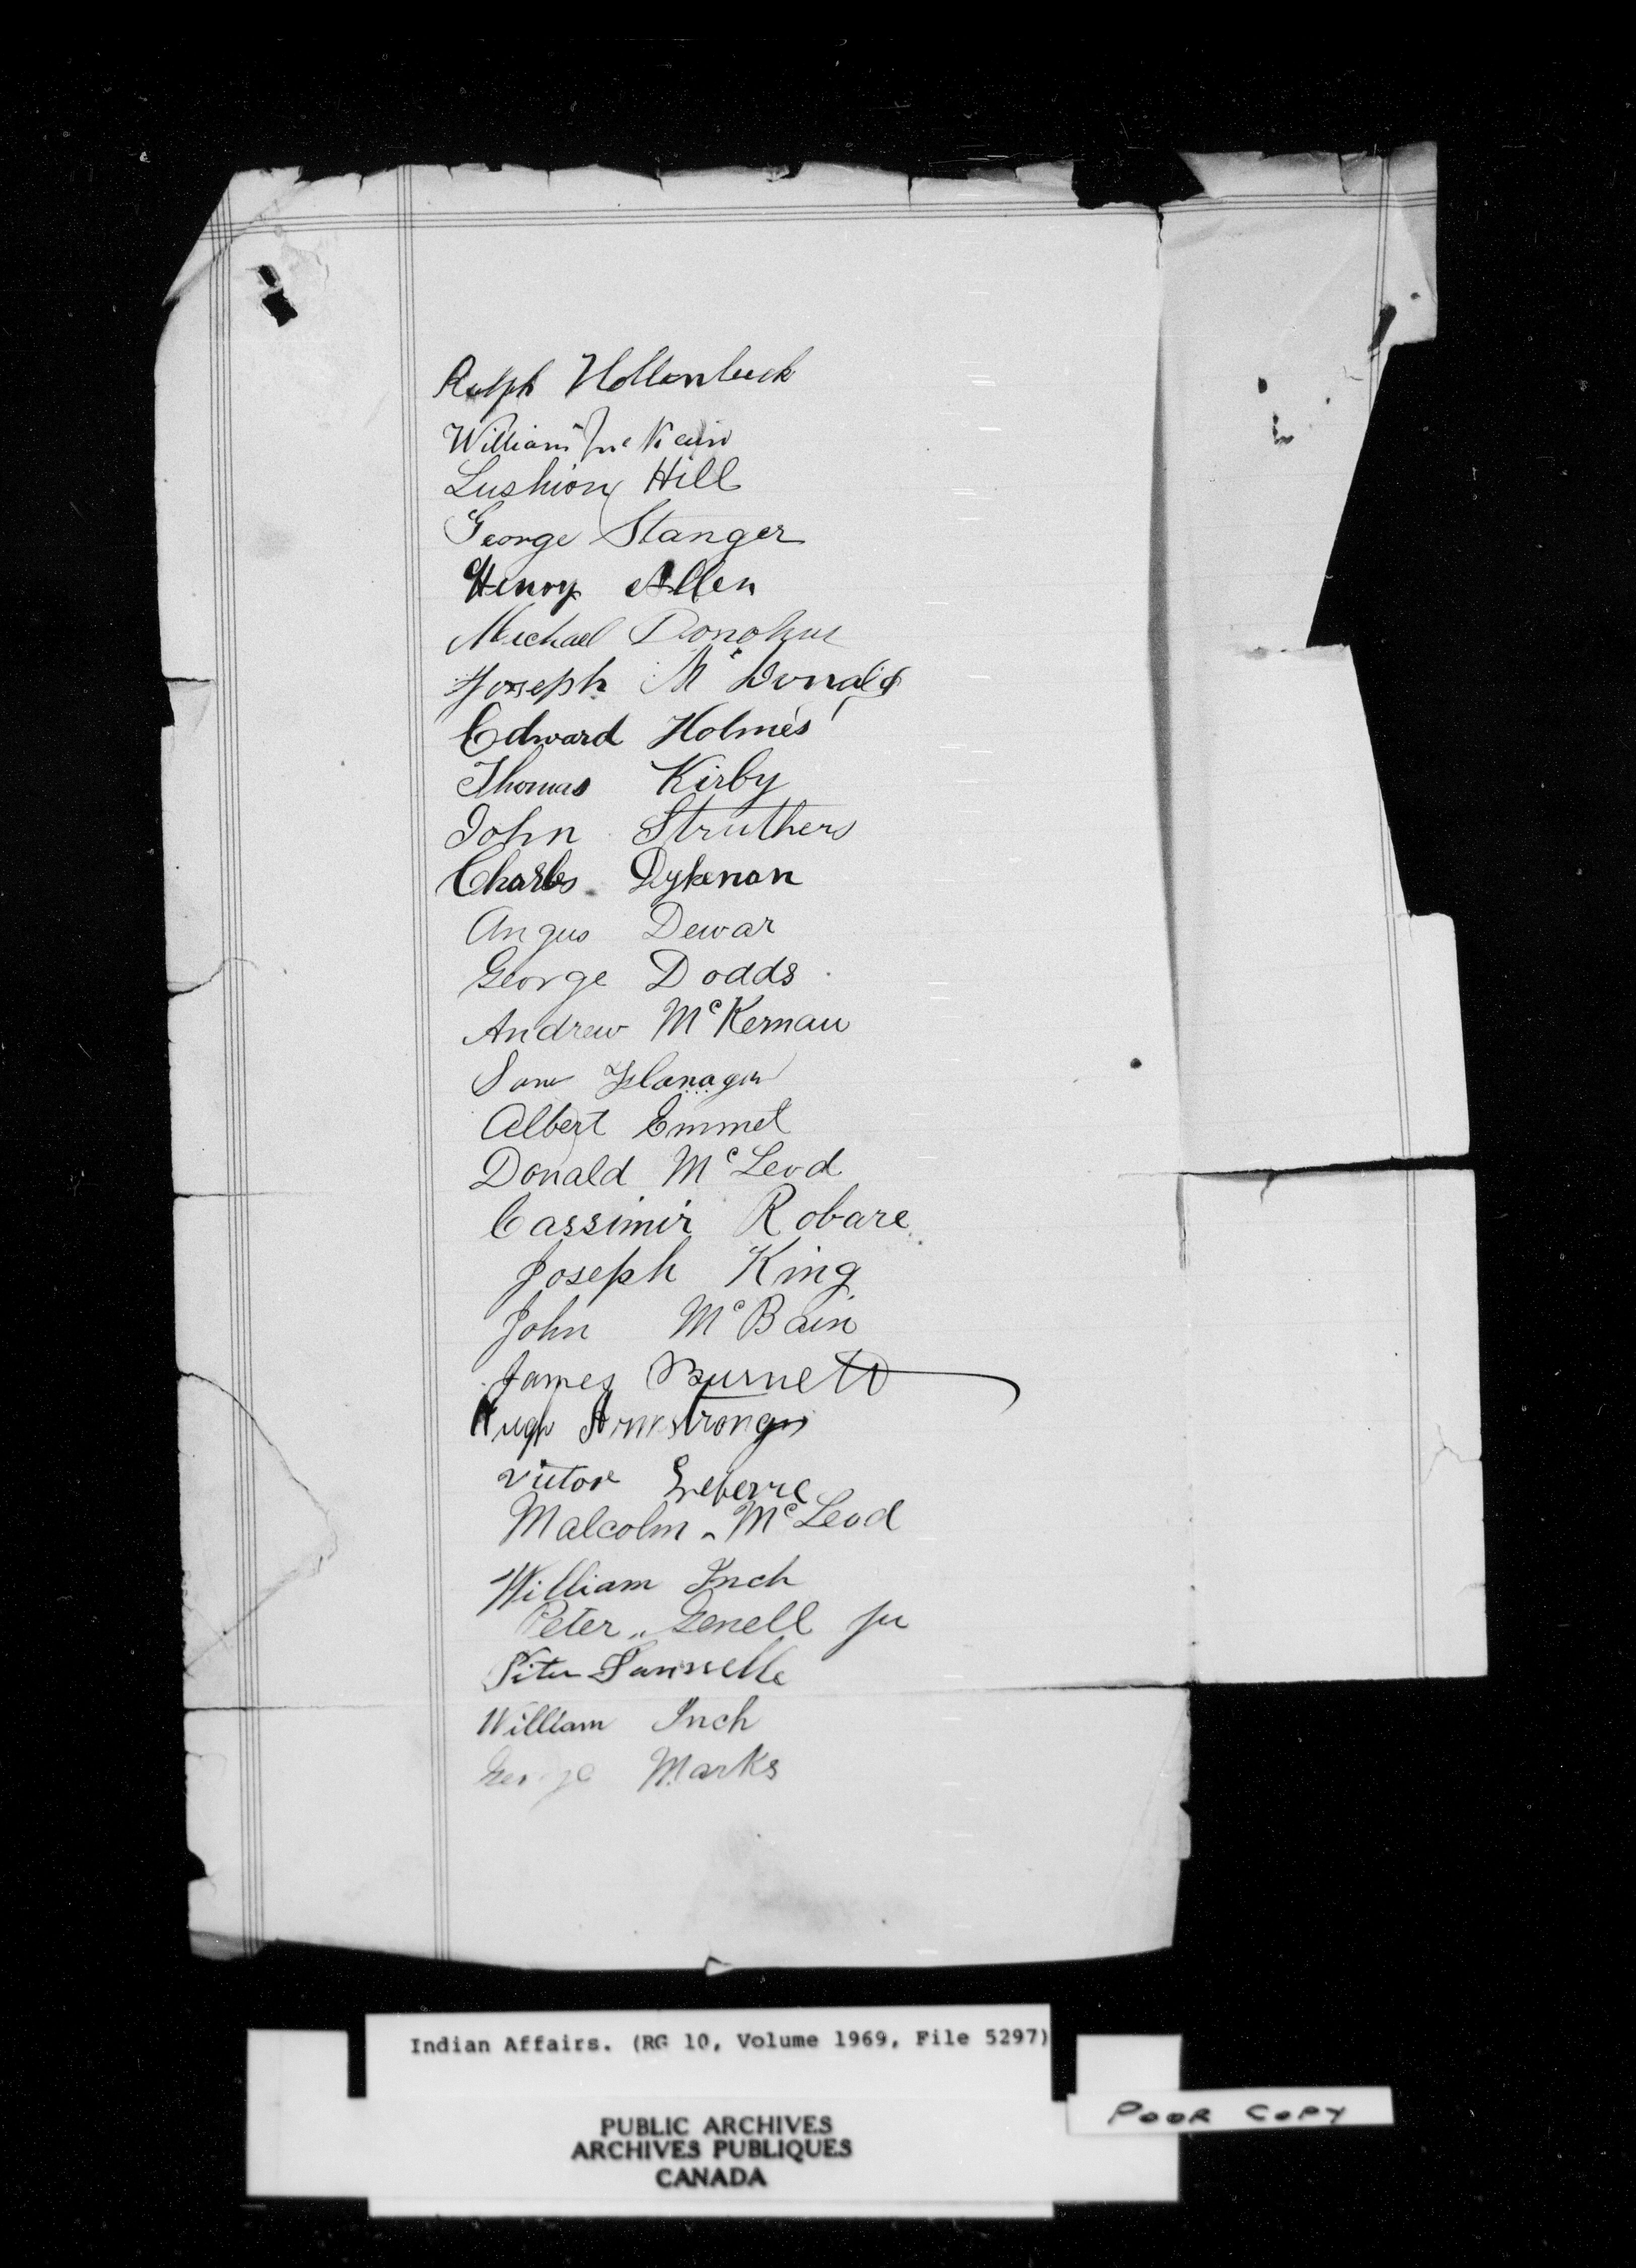 Ralph Hollenbeck
William McKain
Lushion Hill
George Stanger
Henry Allen
Michael Donohue
Joseph McDonald
Edward Holmes
Thomas Kirby
John Struthers
Charles Dykeman
Angus Dewar
George Dodds
Andrew McKernan
Sam Flanagan
Albert Emmet
Donald McLeod
Cassimir Robare
Joseph King
John McBain
James Burnett
Hugh Armstrong
Victor Lefevre
Malcolm McLeod
William Inch
Peter Genell Ju
Peter
William Inch
George Marks
Indian Affairs. (RG 10, Volume 1969, File 5297)
PUBLIC ARCHIVES
ARCHIVES PUBLIQUES
CANADA
POOR COPY